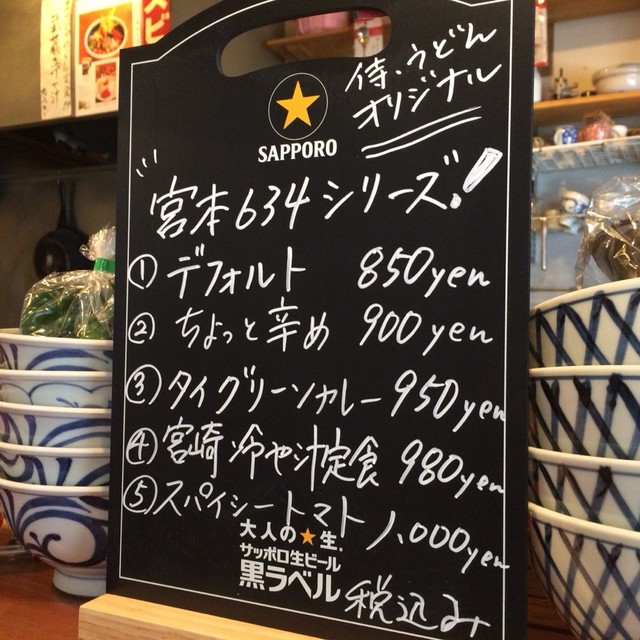 侍・うどん
オリジナル
SAPPORO
宮本634シリーズ!
① デフォルト 850yen
② ちょっと辛め 900yen
③ タイグリーンカレー 950yen
④ 宮崎冷や汁定食 980yen
⑤ スパイシートマト 1,000yen
大人の★生.
サッポロ生ビール
黒ラベル
税込み